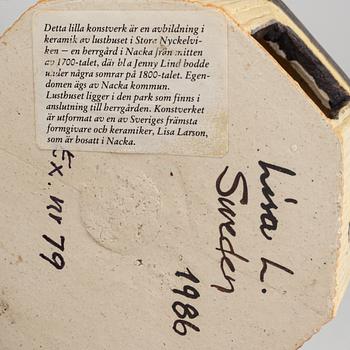 Detta lilla konstverk är en avbildning i
keramik av lusthuset i Stora Nyckelvi-
ken – en herrgård i Nacka från mitten
av 1700-talet, där bl a Jenny Lind bodde
under några somrar på 1800-talet. Egen-
domen ägs av Nacka kommun.
Lusthuset ligger i den park som finns i
anslutning till herrgården. Konstverket
är utformat av en av Sveriges främsta
formgivare och keramiker, Lisa Larson,
som är bosatt i Nacka.
Ex. nr 79
Lisa L.
Sweden
1986